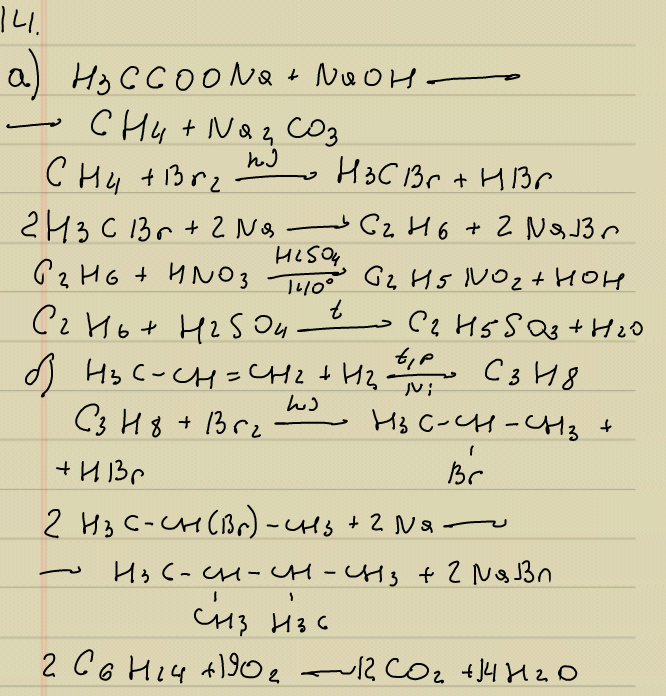 14.
а) H3CCOONa + NaOH ⟶
⟶ CH4 + Na2CO3
CH4 + Br2 —hν→ H3CBr + HBr
2H3CBr + 2Na ⟶ C2H6 + 2NaBr
C2H6 + HNO3 —H2SO4, 140°→ C2H5NO2 + HOH
C2H6 + H2SO4 —t→ C2H5SO3 + H2O
б) H3C–CH=CH2 + H2 —t,p, Ni→ C3H8
C3H8 + Br2 —hν→ H3C–CH–CH3 +
+ HBr Br
2 H3C–CH(Br)–CH3 + 2Na ⟶
⟶ H3C–CH–CH–CH3 + 2NaBr
CH3 H3C
2 C6H14 + 19O2 ⟶ 12CO2 + 14H2O